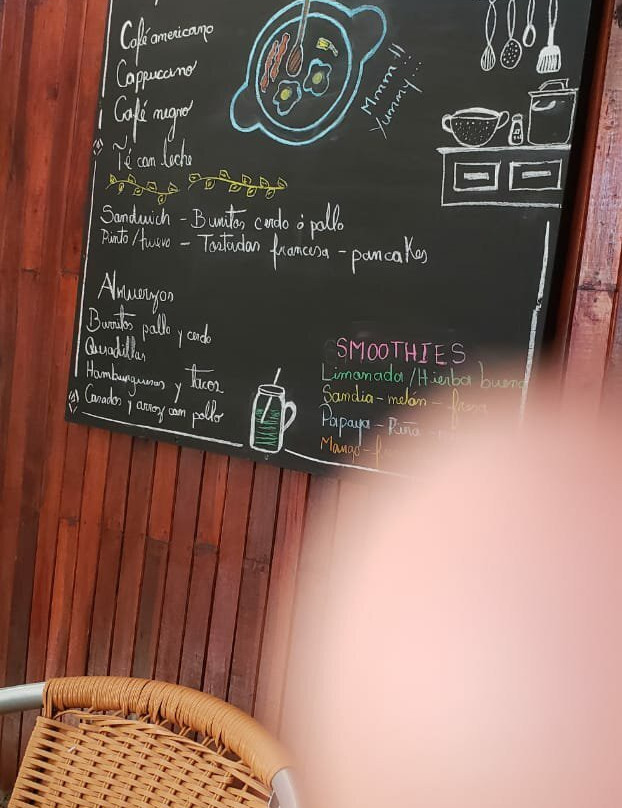 Café americano
Cappuccino
Café negro
Té con leche
Mmm!!
Yummy...
Sandwich - Burritos cerdo ó pollo
Pinto/huevo - Tostadas francesa - pancakes
Almuerzos
Burritos pollo y cerdo
Quesadillas
Hamburguesas y tacos
Casados y arroz con pollo
SMOOTHIES
Limonada/Hierba buena
Sandia - melón - fresa
Papaya - Piña -
Mango -